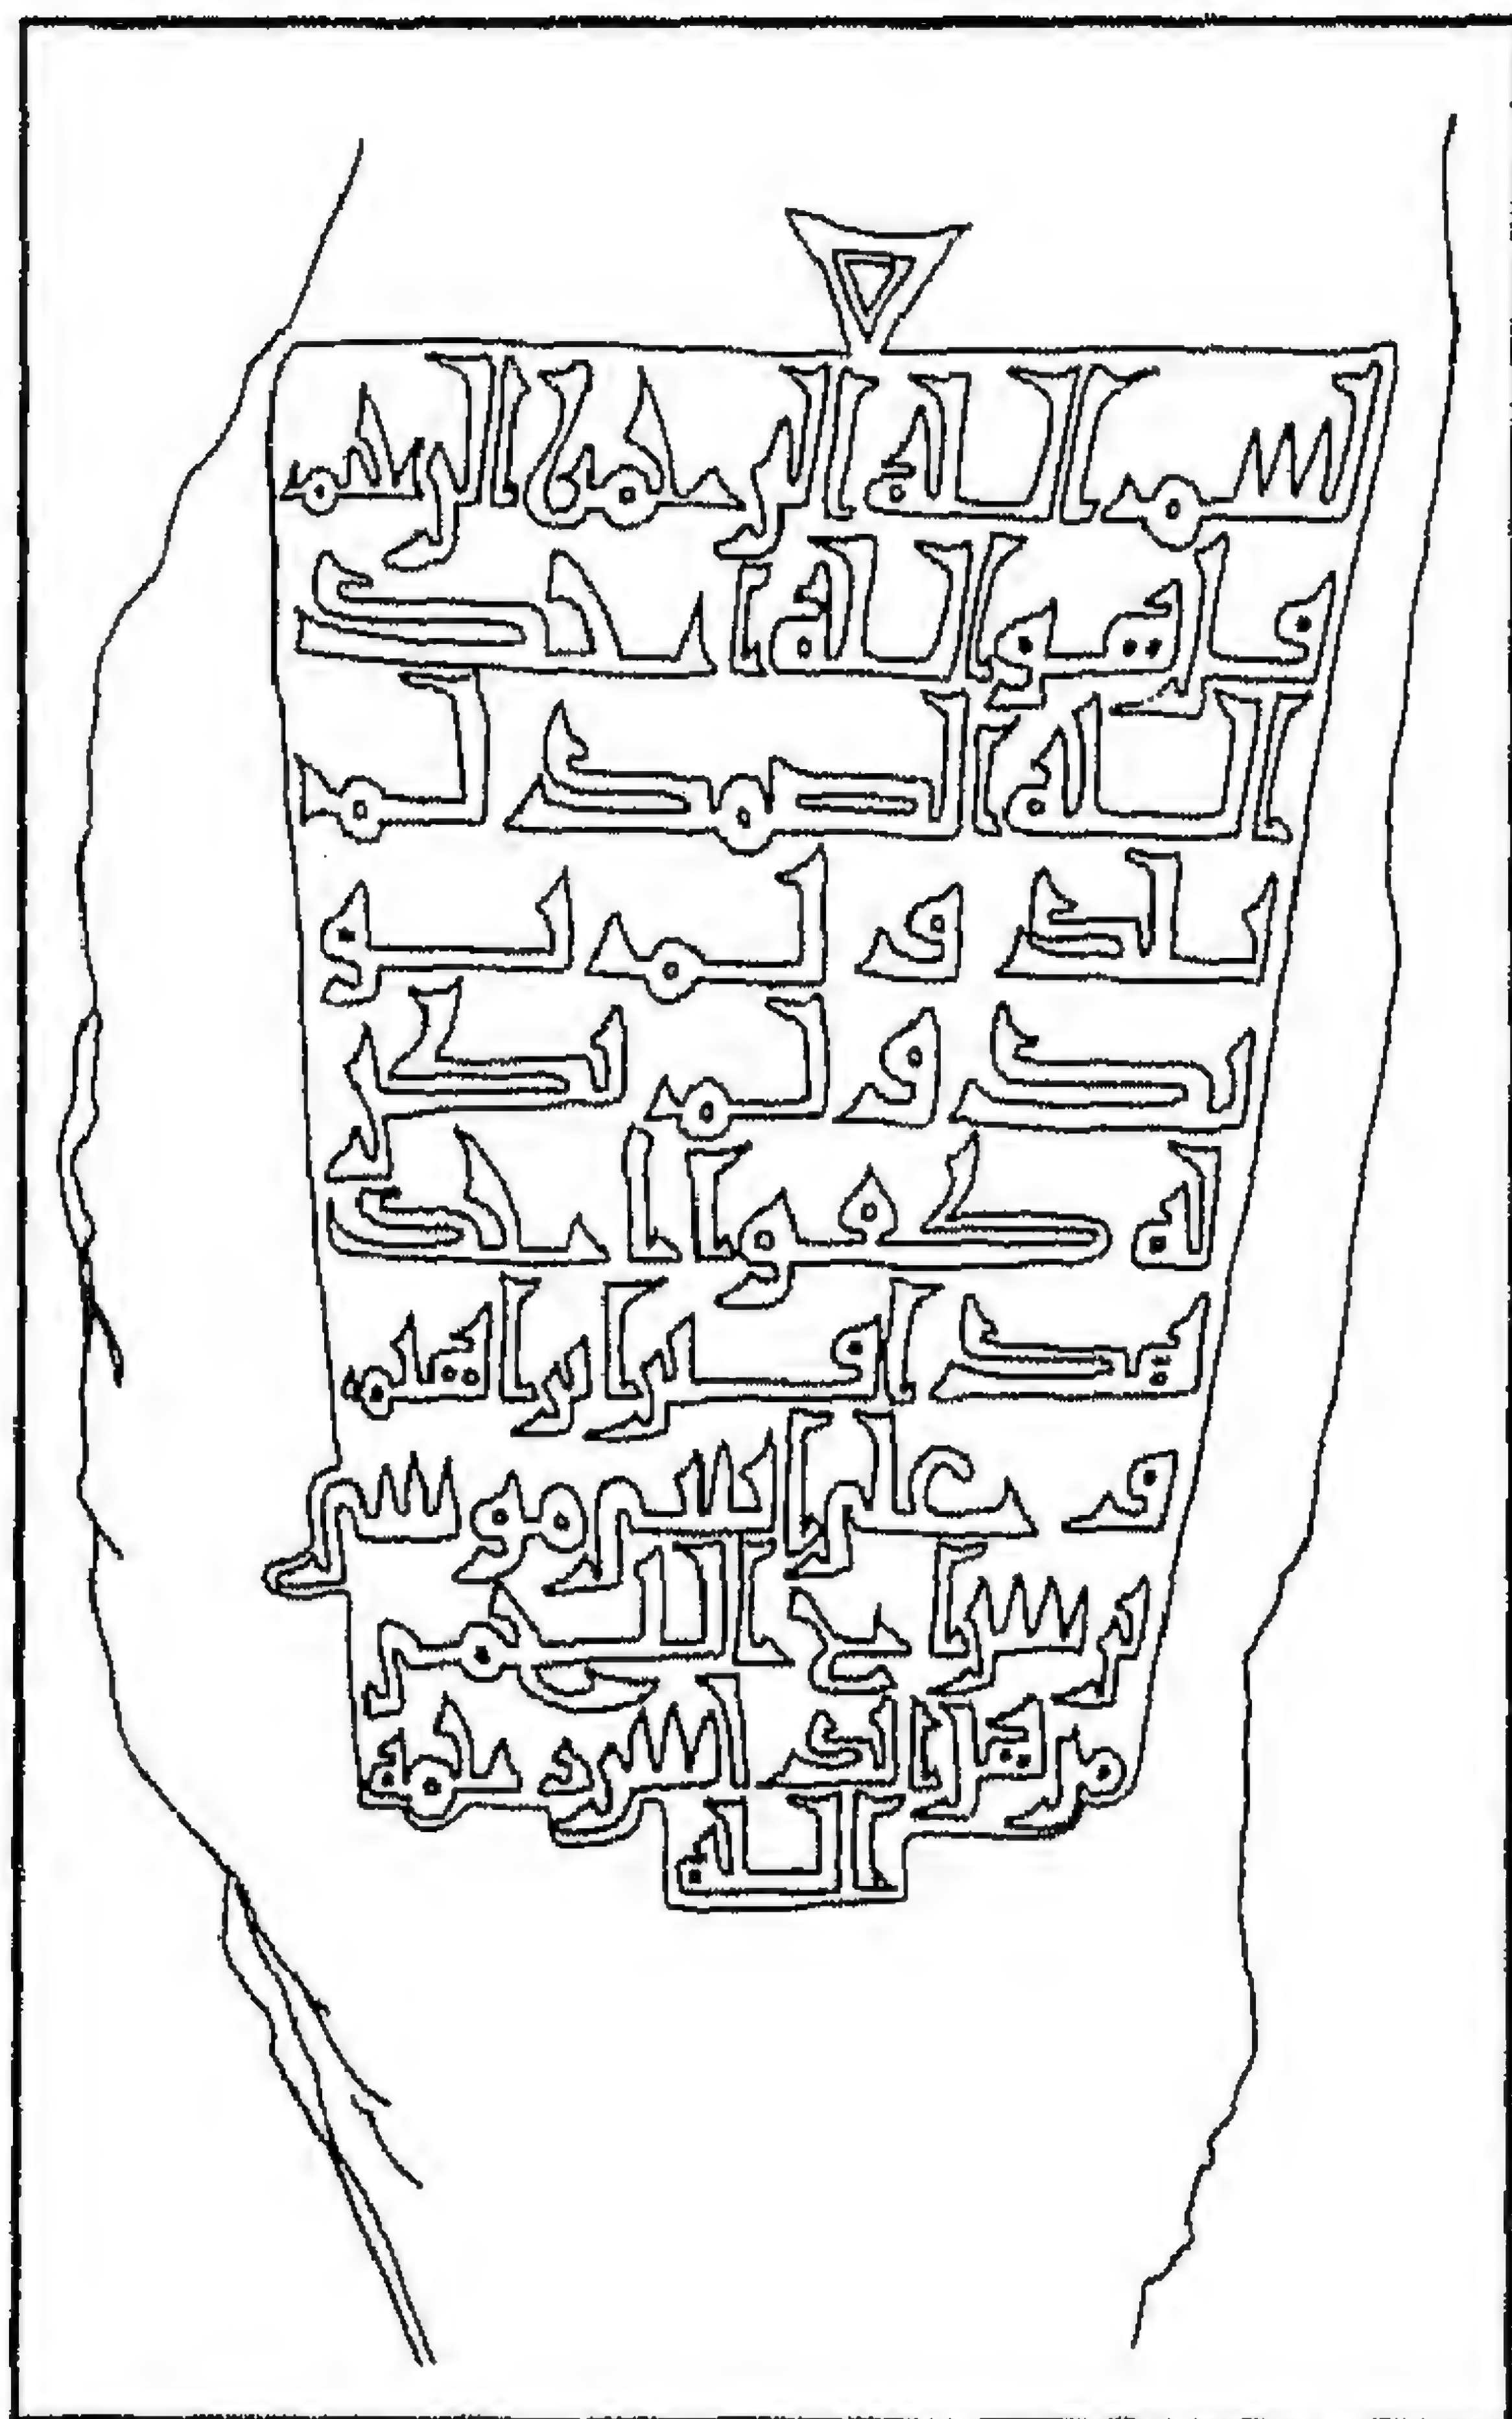 بسم الله الرحمن الرحيم
قل هو الله احد
الله الصمد لم
يلد و لم يو
لد و لم يكن
له كفوا احد
هذا قبر ابراهيم
و علي ابني موسي
بن سراج اللخمي
من قرا رحمه
الله